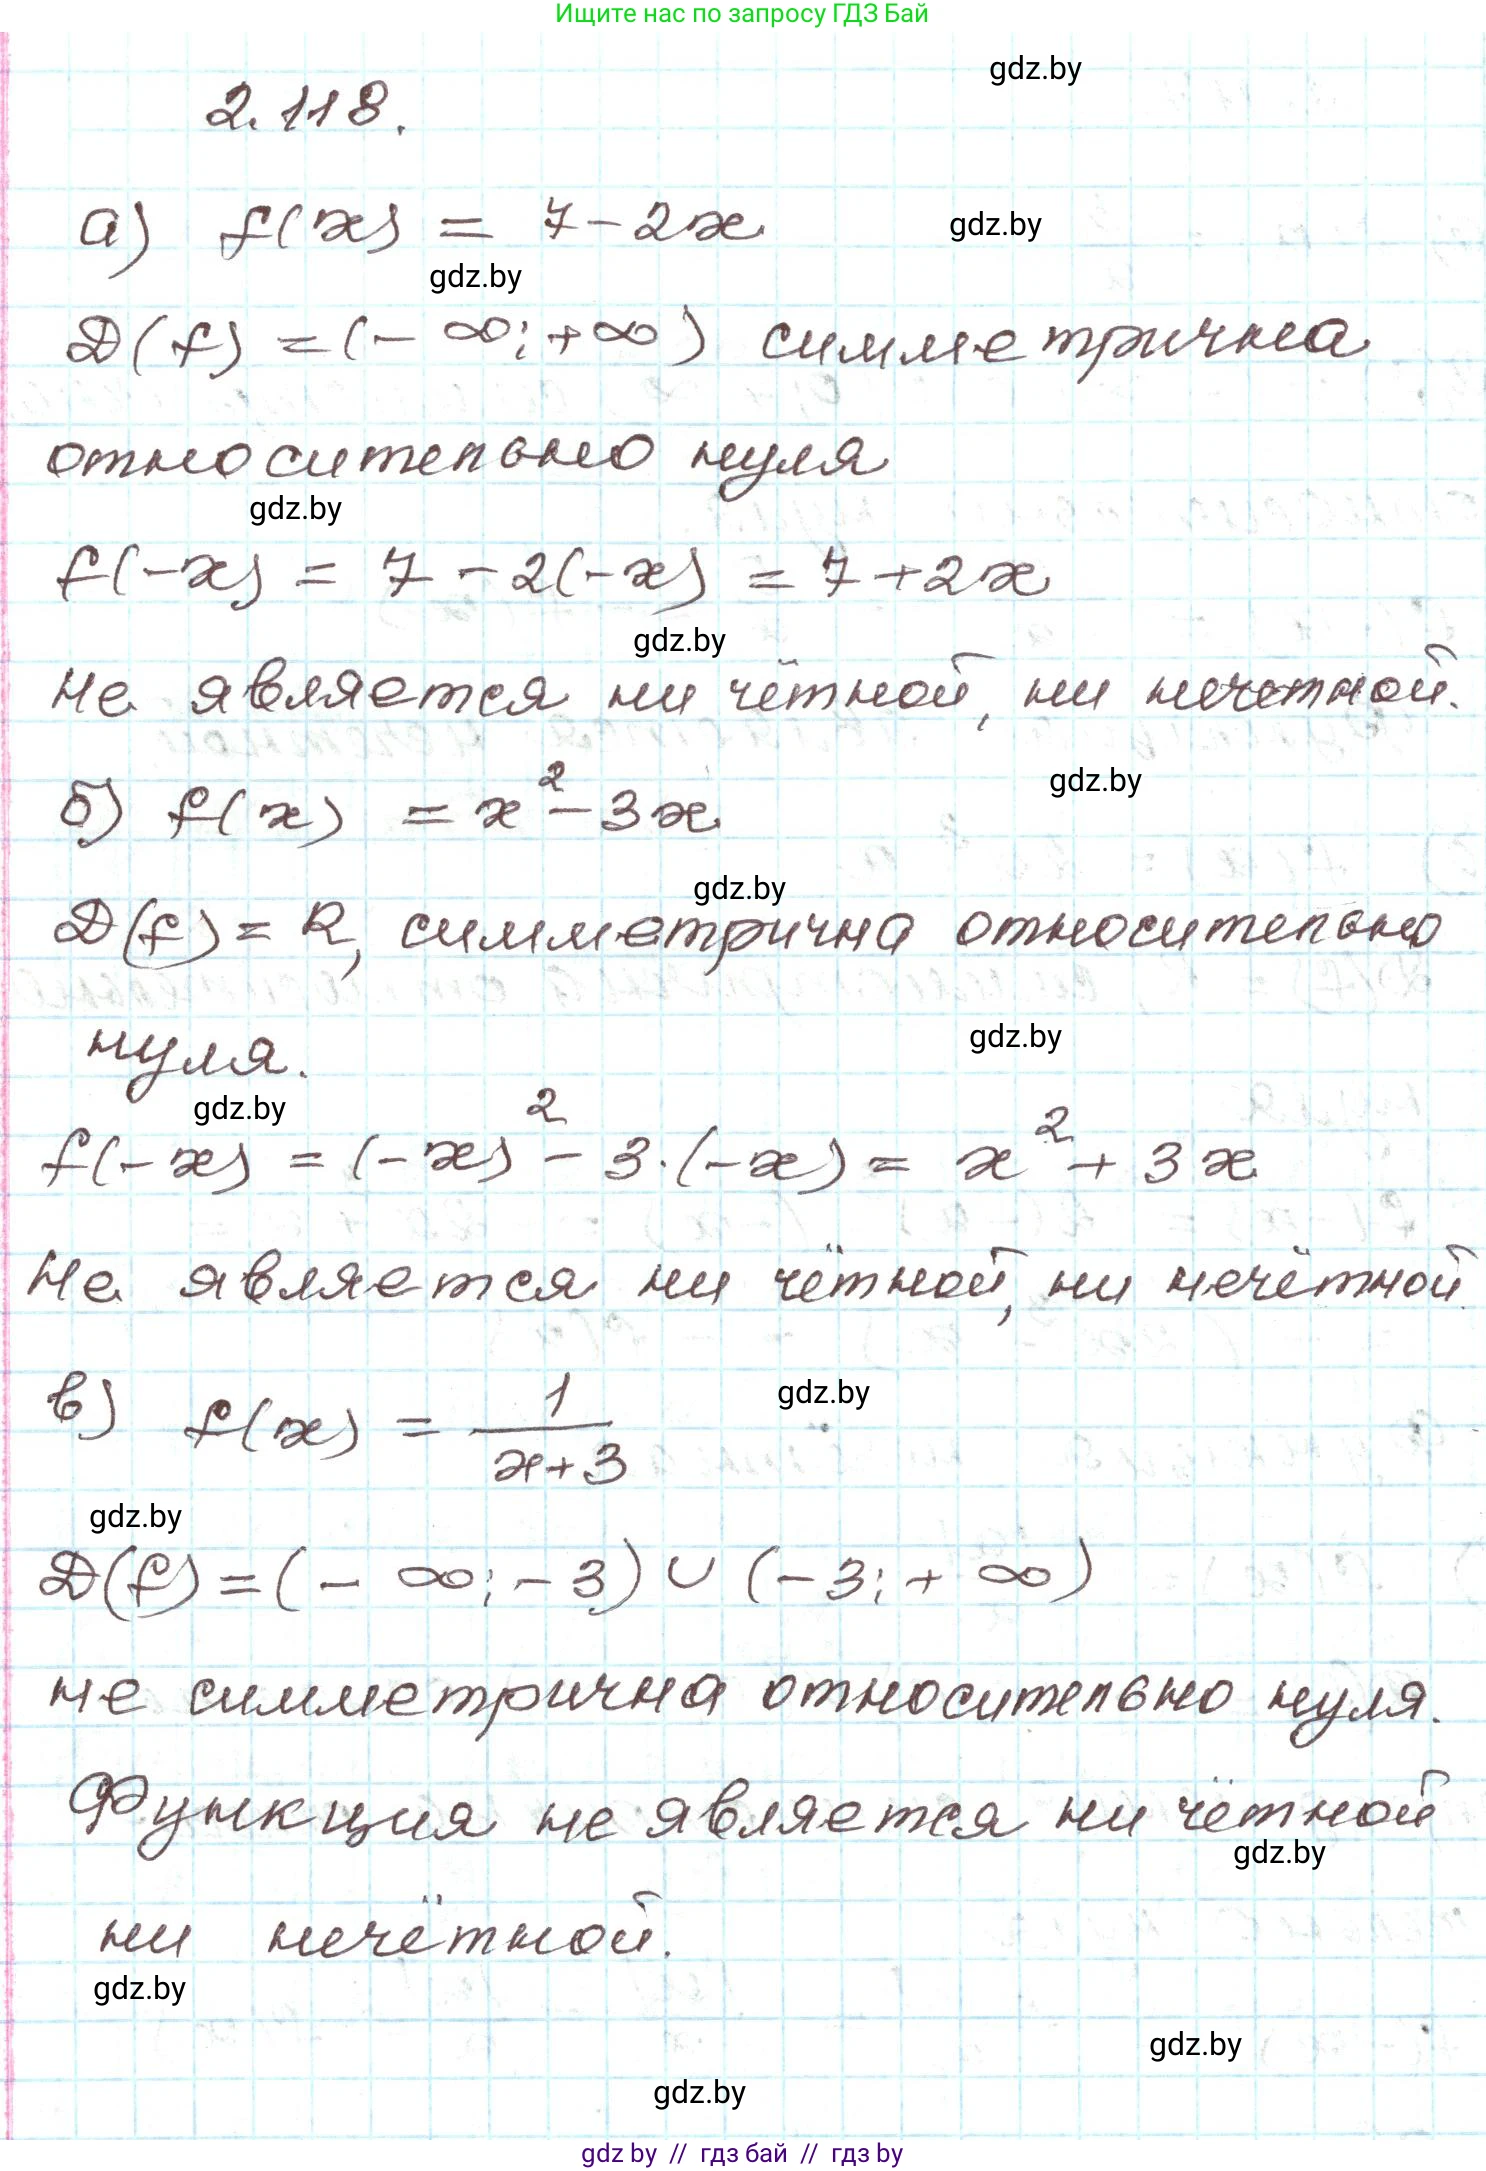 Ищите нас по запросу ГДЗ Бай
gdz.by
2.118.
а) f(x) = 7 - 2x
gdz.by
gdz.by
D(f) = (- ∞; + ∞) симметрична
относительно нуля
gdz.by
f(-x) = 7 - 2(-x) = 7 + 2x
gdz.by
не является ни чётной, ни нечетной.
б) f(x) = x² - 3x
gdz.by
gdz.by
D(f) = R, симметрична относительно
нуля.
gdz.by
gdz.by
f(-x) = (-x)² - 3·(-x) = x² + 3x
Не является ни чётной, ни нечётной.
в) f(x) = 1/(x+3)
gdz.by
gdz.by
D(f) = (- ∞; -3) ∪ (-3; + ∞)
не симметрична относительно нуля.
Функция не является ни чётной
gdz.by
ни нечётной.
gdz.by
gdz.by
gdz.by
gdz by // гдз бай // гдз by